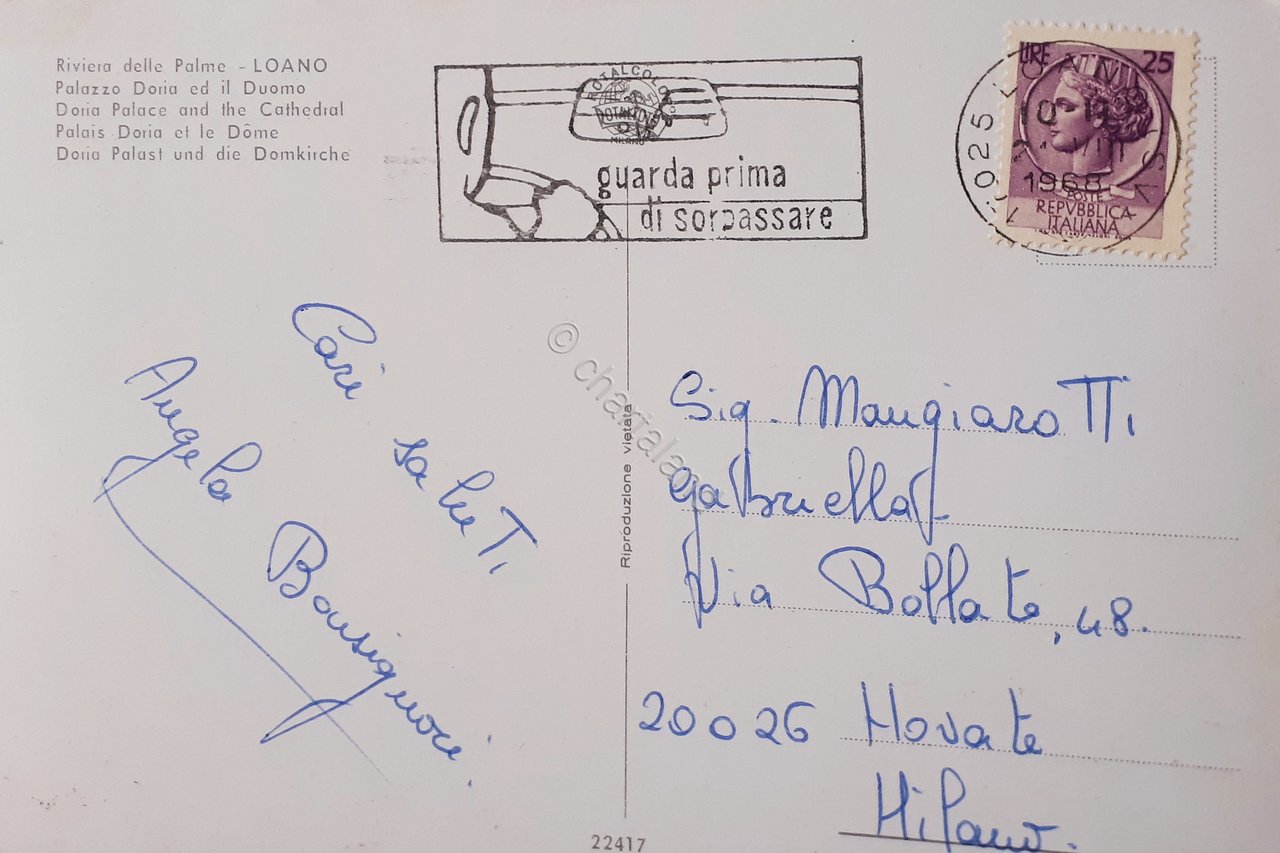 Riviera delle Palme - LOANO
Palazzo Doria ed il Duomo
Doria Palace and the Cathedral
Palais Doria et le Dôme
Doria Palast und die Domkirche
ROTALCOLOR
ROTALFOTO
MILANO
guarda prima
di sorpassare
LIRE 25
17025 LOANO
10-19
VIII
1968
POSTE
REPVBBLICA
ITALIANA
Cari
saluti
Angela Bonsignori.
Reproduzione vietata
Sig. Mangiarotti
Gabriella
Via Bollate, 48.
20026 Novate
Milano.
22417